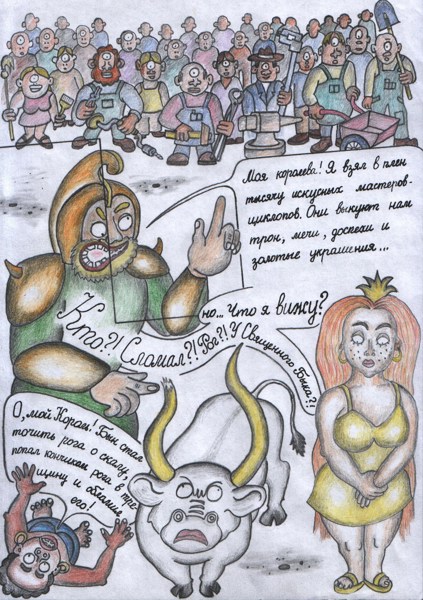 Моя королева! Я взял в плен
тысячу искусных мастеров-
циклопов. Они выкуют нам
трон, мечи, доспехи и
золотые украшения...
но... Что я вижу?
Кто?! Сломал?! Рог?! У Священного Быка?!!
О, мой Король! Бык стал
точить рога о скалу,
попал кончиком рога в тре-
щину и обломил
его!